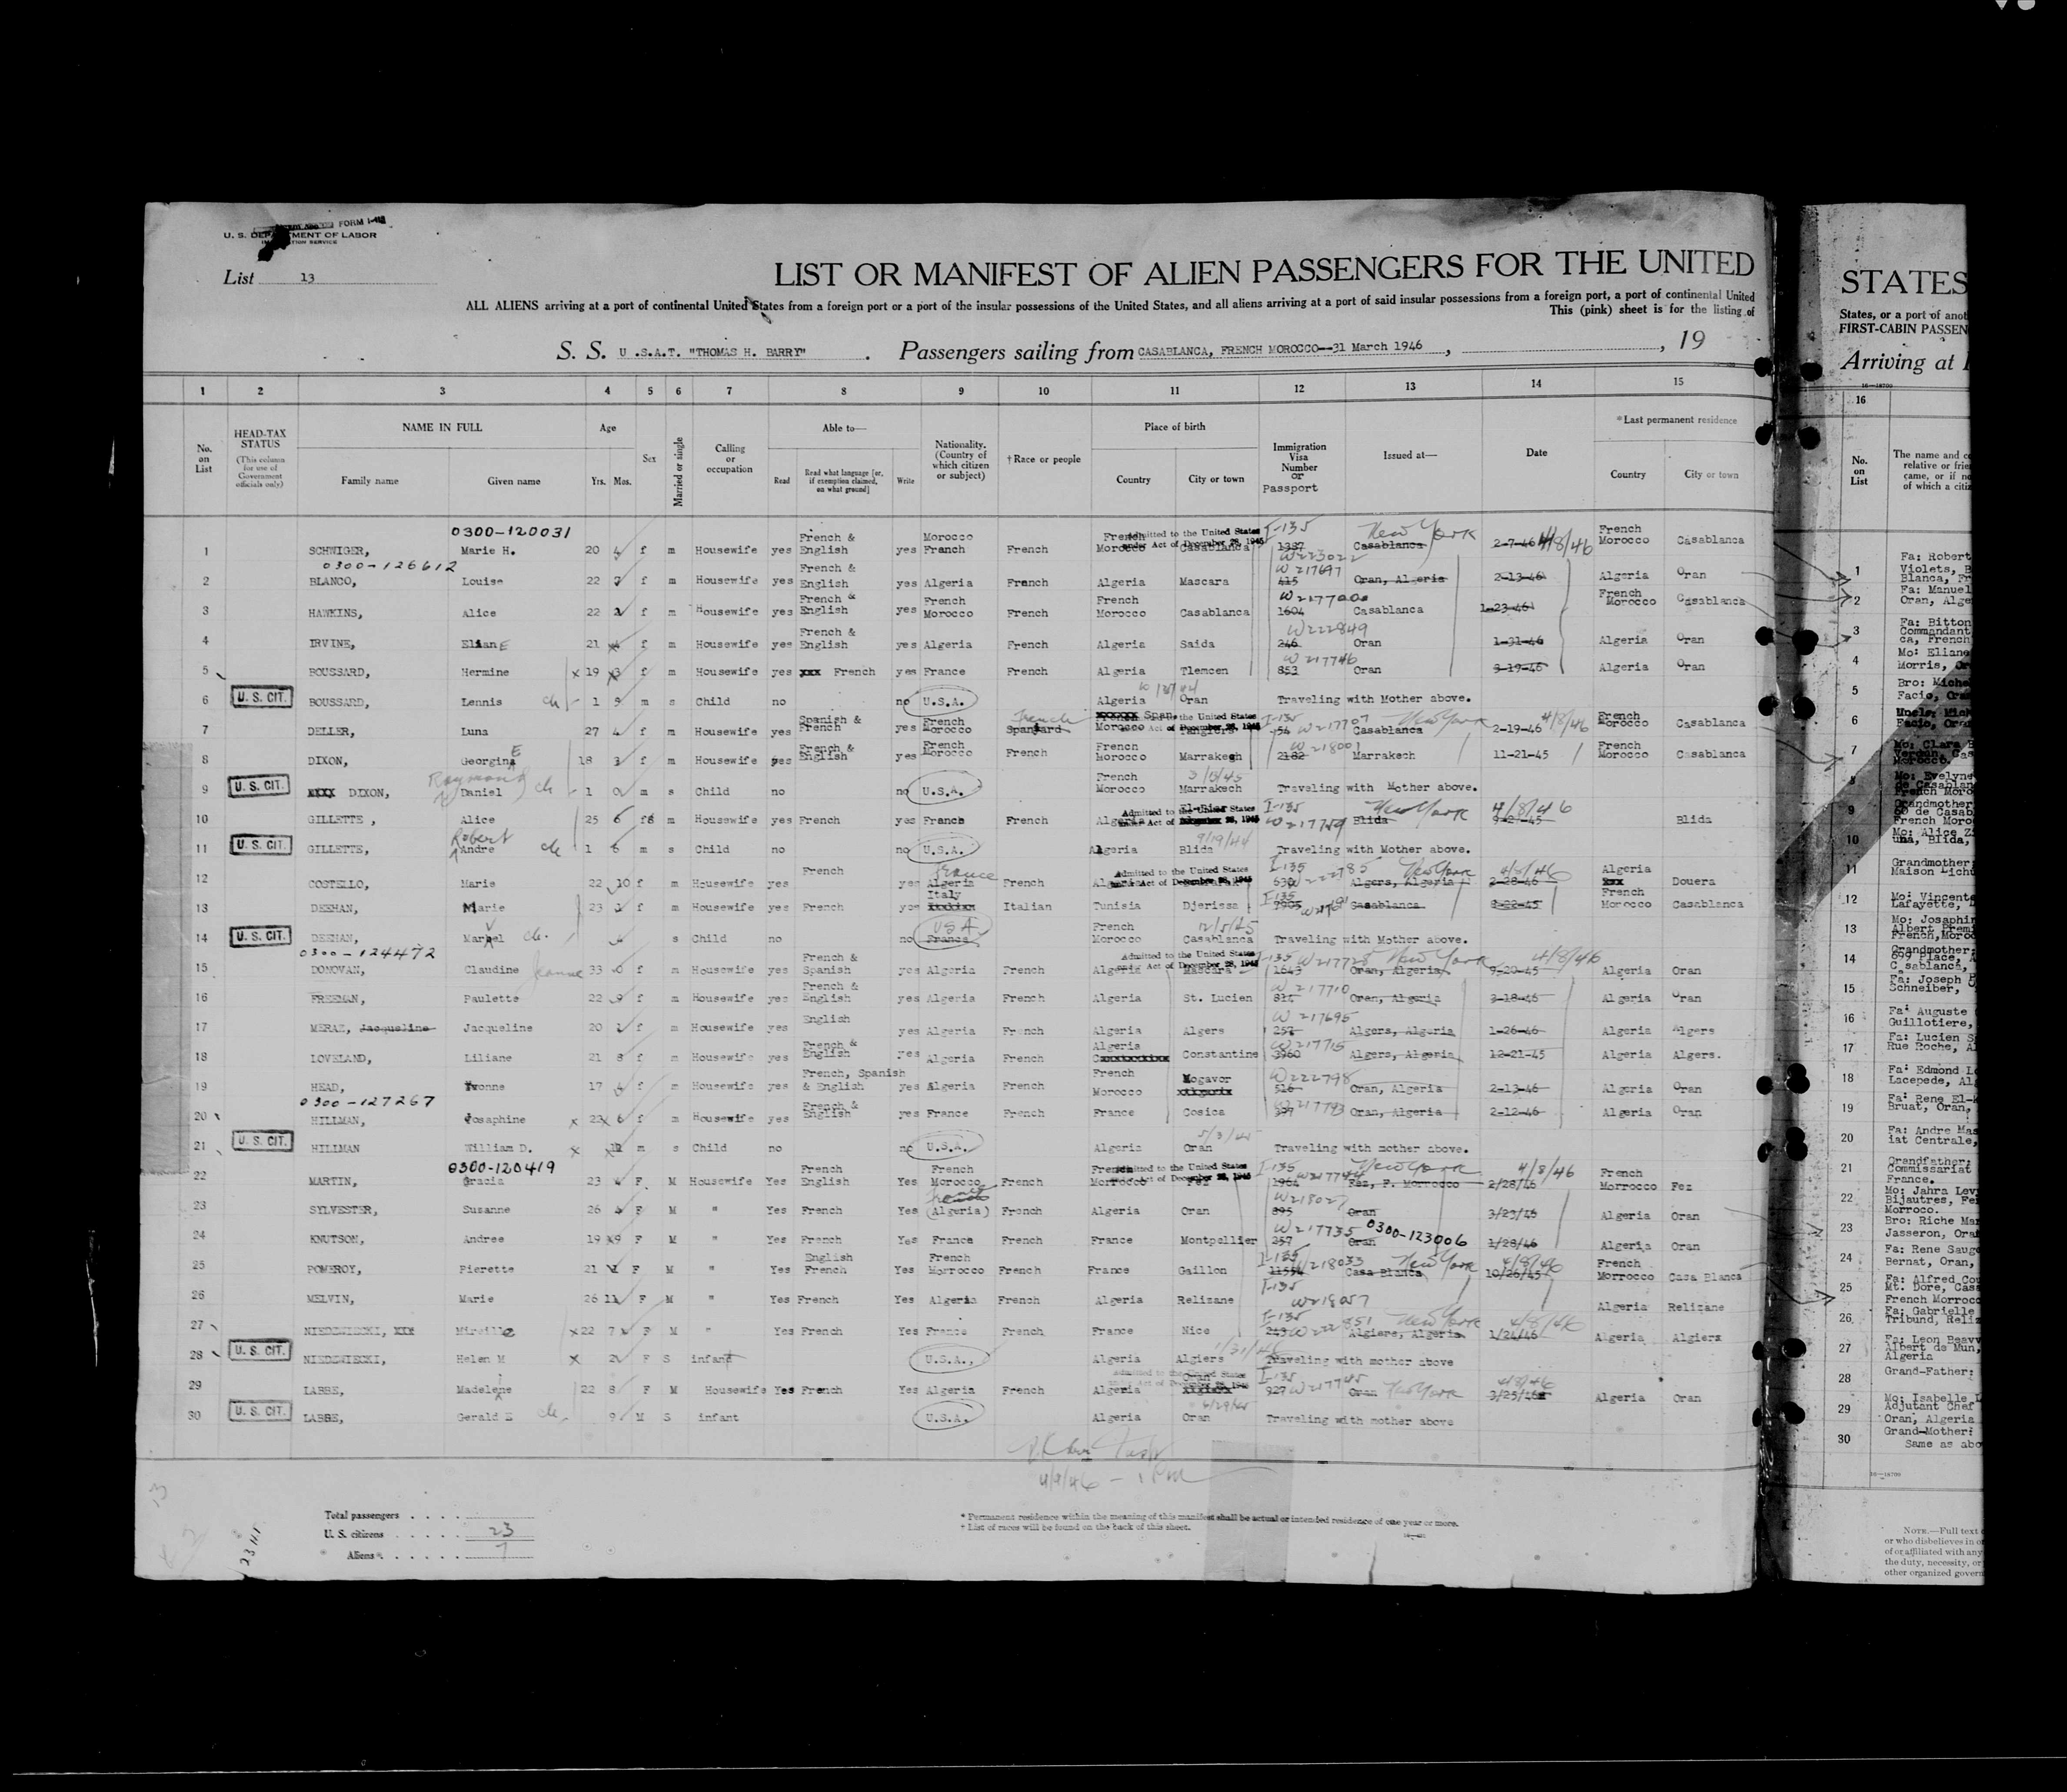 FORM I-418
U. S. DEPARTMENT OF LABOR
List 13
LIST OR MANIFEST OF ALIEN PASSENGERS FOR THE UNITED
ALL ALIENS arriving at a port of continental United States from a foreign port or a port of the insular possessions of the United States, and all aliens arriving at a port of said insular possessions from a foreign port, a port of continental United
This (pink) sheet is for the listing of
S. S. U .S.A.T. "THOMAS H. BARRY" . Passengers sailing from CASABLANCA, FRENCH MOROCCO--31 March 1946 , , 19
1 2 3 4 5 6 7 8 9 10 11 12 13 14 15
No. on List HEAD-TAX STATUS (This column for use of Government officials only) NAME IN FULL Family name Given name Age Yrs. Mos. Sex Married or single Calling or occupation Able to— Read Read what language [or, if exemption claimed, on what ground] Write Nationality. (Country of which citizen or subject) † Race or people Place of birth Country City or town Immigration Visa Number or Passport Issued at— Date * Last permanent residence Country City or town
0300-120031
1 SCHWIGER, Marie H. 20 4 f m Housewife yes French & English yes Morocco French French French Morocco Casablanca Admitted to the United States under Act of December 28, 1945 I-135 1387 W223022 Casablanca New York 2-7-46 4/8/46 French Morocco Casablanca
0300-126612
2 BLANCO, Louise 22 7 f m Housewife yes French & English yes Algeria French Algeria Mascara W217697 415 Oran, Algeria 2-13-46 Algeria Oran
3 HAWKINS, Alice 22 2 f m Housewife yes French & English yes French Morocco French French Morocco Casablanca W217700 1604 Casablanca 1-23-46 French Morocco Casablanca
4 IRVINE, Eliane 21 4 f m Housewife yes French & English yes Algeria French Algeria Saida W222849 246 Oran 1-31-46 Algeria Oran
5 BOUSSARD, Hermine x 19 3 f m Housewife yes xxx French yes France French Algeria Tlemcen W217746 853 Oran 3-19-46 Algeria Oran
6 U. S. CIT. BOUSSARD, Lennis ch 1 9 m s Child no no U.S.A. Algeria Oran Traveling with Mother above.
7 DELLER, Luna 27 4 f m Housewife yes Spanish & French yes French Morocco Spaniard French Morocco Admitted to the United States under Act of December 28, 1945 I-135 154 W21770 Casablanca New York 2-19-46 4/8/46 French Morocco Casablanca
8 DIXON, Georgina E 18 3 f m Housewife yes French & English yes French Morocco French French Morocco Marrakech W218001 2182 Marrakech 11-21-45 French Morocco Casablanca
9 U. S. CIT. xxxx DIXON, Raymond Daniel ch 1 0 m s Child no no U.S.A. French Morocco Marrakech 3/13/45 Traveling with Mother above.
10 GILLETTE , Alice 25 6 f m Housewife yes French yes France French Algeria Admitted to the United States under Act of December 28, 1945 I-135 Blida New York 4/8/46 Blida
11 U. S. CIT. GILLETTE, Robert Andre ch 1 6 m s Child no no U.S.A. Algeria Blida 9/19/44 Traveling with Mother above.
12 COSTELLO, Marie 22 10 f m Housewife yes French yes Algeria France French Algeria Admitted to the United States under Act of December 28, 1945 I-135 630 Algers, Algeria New York 2-28-46 Algeria xxx Douera
13 DEEHAN, Marie 23 f m Housewife yes French yes Italy Italian Tunisia Djerissa I-135 Casablanca French Morocco Casablanca
14 U. S. CIT. DEEHAN, Marcel ch. 4 s Child no no France USA French Morocco Casablanca 12/5/45 Traveling with Mother above.
0300-124472
15 DONOVAN, Claudine Jeanne 33 0 f m Housewife yes French & Spanish yes Algeria French Algeria Mascara Admitted to the United States under Act of December 28, 1945 I-135 W217728 1643 Oran, Algeria New York 9-20-45 4/8/46 Algeria Oran
16 FREEMAN, Paulette 22 9 f m Housewife yes French & English yes Algeria French Algeria St. Lucien W217710 Oran, Algeria 3-18-46 Algeria Oran
17 MERAZ, Jacqueline Jacqueline 20 1 f m Housewife yes English yes Algeria French Algeria Algers W217695 257 Algers, Algeria 1-26-46 Algeria Algers
18 LOVELAND, Liliane 21 8 f m Housewife yes French & English yes Algeria French Algeria Constantine W217715 3960 Algers, Algeria 12-21-45 Algeria Algers.
19 HEAD, Yvonne 17 4 f m Housewife yes French, Spanish & English yes Algeria French French Morocco Mogavor W222798 516 Oran, Algeria 2-13-46 Algeria Oran
0300-127267
20 HILLMAN, Josephine x 22 6 f m Housewife yes French & English yes France French France Cosica W217793 397 Oran, Algeria 2-12-46 Algeria Oran
21 U. S. CIT. HILLMAN William D. x m s Child no no U.S.A. Algeria Oran Traveling with mother above.
0300-120419
22 MARTIN, Gracia 23 4 F. M Housewife Yes French English Yes French Morocco French French Morrocco Fez Admitted to the United States under Act of December 28, 1945 I-135 1964 Fez, F. Morrocco New York 2/28/46 4/8/46 French Morrocco Fez
23 SYLVESTER, Suzanne 26 4 F M " Yes French Yes France (Algeria) French Algeria Oran W218027 895 Oran 3/23/46 Algeria Oran
24 KNUTSON, Andree 19 9 F M " Yes French Yes France French France Montpellier W217735 257 Oran 0300-123006 1/28/46 Algeria Oran
25 POMEROY, Pierette 21 1 F M " Yes English French Yes French Morrocco French France Gaillon I-135 W218033 Casa Blanca New York 10/26/45 4/8/46 French Morrocco Casa Blanca
26 MELVIN, Marie 26 11 F M " Yes French Yes Algeria French Algeria Relizane I-135 W218057 Algeria Relizane
27 NIEDZWIECKI, XXX Mireille x 22 7 F M " Yes French Yes France French France Nice I-135 243 W222851 Algiers, Algeria New York 1/24/46 4/8/46 Algeria Algiers
28 U. S. CIT. NIEDZWIECKI, Helen M x 2 F S infant U.S.A., Algeria Algiers Traveling with mother above
29 LABBE, Madelene 22 8 F M Housewife Yes French Yes Algeria French Algeria Oran I-135 927 W217745 Oran New York 3/25/46 4/8/46 Algeria Oran
30 U. S. CIT. LABBE, Gerald E ch 9 M S infant U.S.A. Algeria Oran 6/29/45 Traveling with mother above
4/9/46 - 1 PM
Total passengers . . . .
U. S. citizens . . . . . 23
Aliens . . . . . . 7
* Permanent residence within the meaning of this manifest shall be actual or intended residence of one year or more.
† List of races will be found on the back of this sheet.
STATES
States, or a port of anot
FIRST-CABIN PASSEN
Arriving at
16—18700
16
No. on List
The name and c
relative or frie
came, or if no
of which a citiz
1 Fa: Robert
Violets, B
Blanca, Fr
2 Fa: Manuel
Oran, Alge
3 Fa: Bitton
Commandant
ca, French
4 Mo: Eliane
Morris, Or
5 Bro: Miche
Facio, Oran
6 Uncle: Mich
Facio, Oran
7 Mo: Clara B
Verdun, Cas
Morocco.
8 Mo: Evelyne
de Casablan
French Moro
9 Grandmother
60 de Casab
French Moro
10 Mo: Alice Zi
una, Blida,
11 Grandmother:
Maison
12 Mo: Vincente
Lafayette,
13 Mo: Josaphin
Albert Premi
French, Moroc
14 Grandmother:
699 Place, A
Casablanca,
15 Fa: Joseph
Schneiber,
16 Fa: Auguste
Guillotiere,
17 Fa: Lucien S
Rue Roche, A
18 Fa: Edmond L
Lacepede, Alg
19 Fa: Rene El-
Bruat, Oran,
20 Fa: Andre Mas
iat Centrale,
21 Grandfather:
Commissariat
France.
22 Mo: Jahra Lev
Bijautres, Fe
Morroco.
23 Bro: Riche Ma
Jasseron, Ora
24 Fa: Rene Sauge
Bernat, Oran,
25 Fa: Alfred Cou
Mt. Dore, Casa
French Morroco
26 Fa: Gabrielle
Tribund, Reliz
27 Fa: Leon Beavv
Albert de Mun,
Algeria
28 Grand-Father:
29 Mo: Isabelle L
Adjutant Chef
Oran, Algeria
30 Grand-Mother:
Same as abo
16—18700
NOTE.—Full text
or who disbelieves in o
of or affiliated with any
the duty, necessity, or
other organized govern